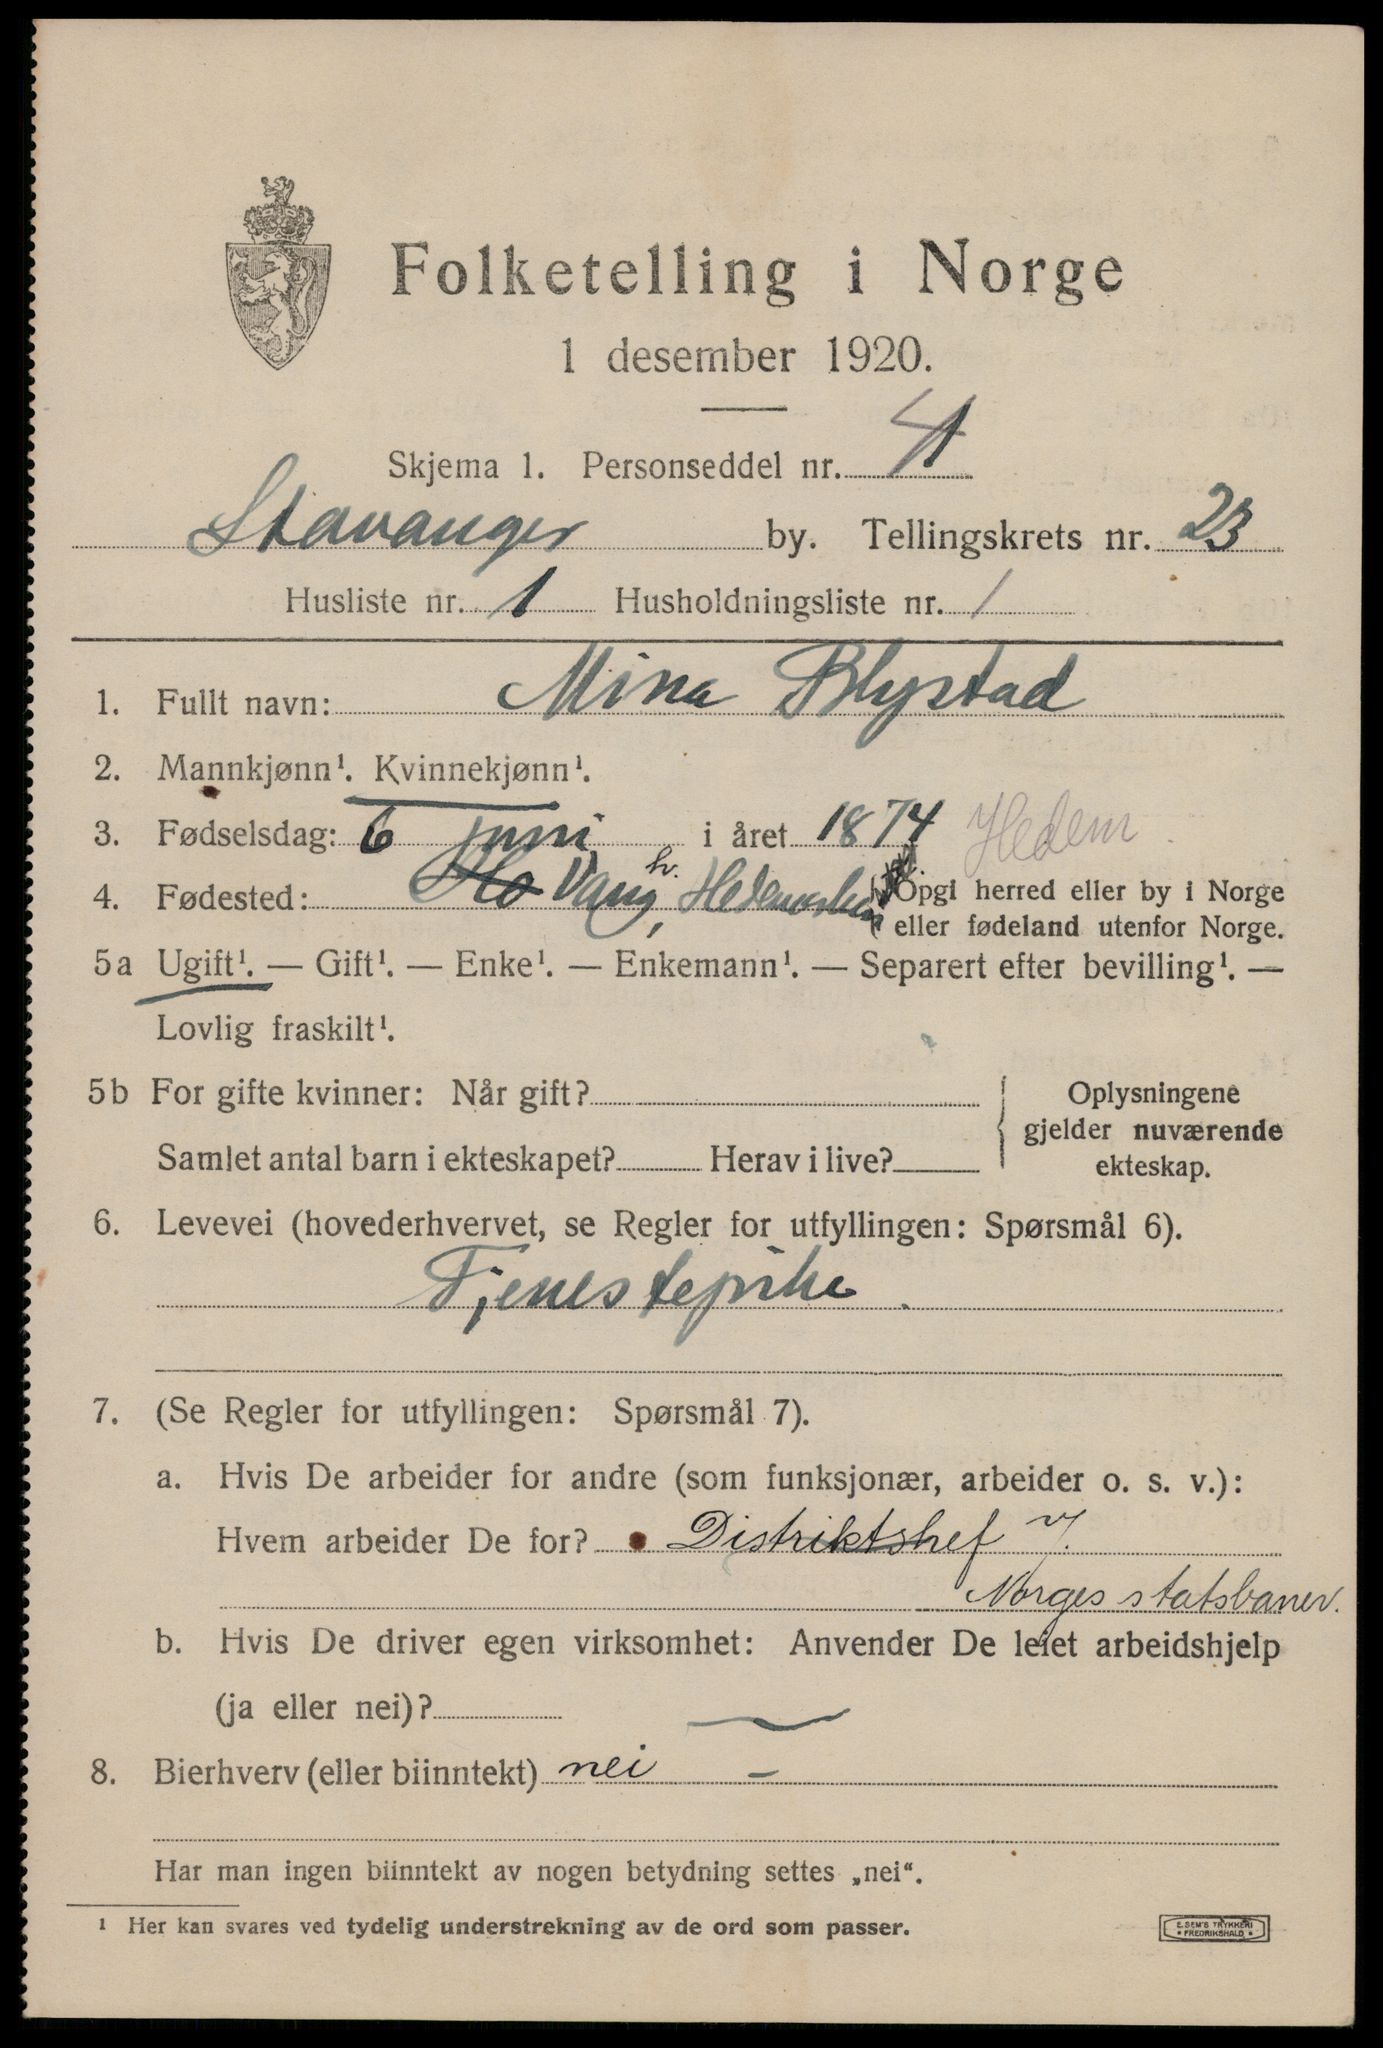 Folketelling i Norge
1 desember 1920.
Skjema 1. Personseddel nr. 4
Stavanger by. Tellingskrets nr. 23
Husliste nr. 1 Husholdningsliste nr. 1
1. Fullt navn: Mina Blystad
2. Mannkjønn¹. Kvinnekjønn¹.
3. Fødselsdag: 6 juni i året 1874 Hedem
4. Fødested: Vang h., Hedemarken (Opgi herred eller by i Norge
eller fødeland utenfor Norge.
5a Ugift¹. — Gift¹. — Enke¹. — Enkemann¹. — Separert efter bevilling¹. —
Lovlig fraskilt¹.
5b For gifte kvinner: Når gift? Oplysningene
gjelder nuværende
Samlet antal barn i ekteskapet? Herav i live? ekteskap.
6. Levevei (hovederhvervet, se Regler for utfyllingen: Spørsmål 6).
Tjenestepike.
7. (Se Regler for utfyllingen: Spørsmål 7).
a. Hvis De arbeider for andre (som funksjonær, arbeider o. s. v.):
Hvem arbeider De for? Distriktshef v/.
Norges statsbaner.
b. Hvis De driver egen virksomhet: Anvender De leiet arbeidshjelp
(ja eller nei)? —
8. Bierhverv (eller biinntekt) nei —
Har man ingen biinntekt av nogen betydning settes „nei“.
¹ Her kan svares ved tydelig understrekning av de ord som passer.
E. SEM'S TRYKKERI
• FREDRIKSHALD •